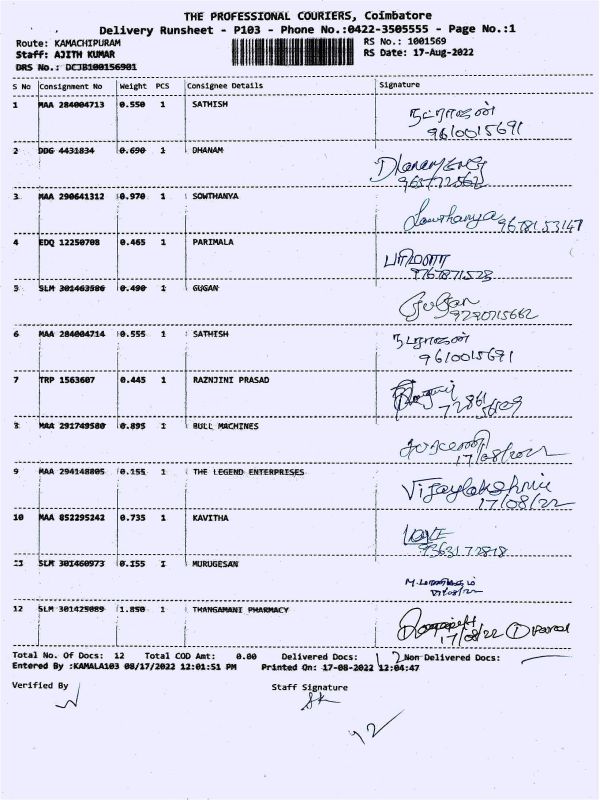 THE PROFESSIONAL COURIERS, Coimbatore
Delivery Runsheet - P103 - Phone No.:0422-3505555 - Page No.:1
Route: KAMACHIPURAM RS No.: 1001569
Staff: AJITH KUMAR RS Date: 17-Aug-2022
DRS No.: DCJB100156901
S No Consignment No Weight PCS Consignee Details Signature
1 MAA 284004713 0.550 1 SATHISH நடராஜன்
9610015691
2 DDG 4431834 0.690 1 DHANAM
3 MAA 290641312 0.970 1 SOWTHANYA Sowthanya 9678153147
4 EDQ 12250708 0.465 1 PARIMALA பரிமளா
9767871523
5 SLM 301463586 0.490 1 GUGAN Gugan
9290715662
6 MAA 284004714 0.555 1 SATHISH நடராஜன்
9610015691
7 TRP 1563607 0.445 1 RAZNJINI PRASAD
8 MAA 291749580 0.895 1 BULL MACHINES
17/08/2022
9 MAA 294148805 0.155 1 THE LEGEND ENTERPRISES Vijaylakshmi
17/08/22
10 MAA 852295242 0.735 1 KAVITHA
9363172818
11 SLM 301460973 0.155 1 MURUGESAN
12 SLM 301425089 1.850 1 THANGAMANI PHARMACY
17/08/22
Total No. Of Docs: 12 Total COD Amt: 0.00 Delivered Docs: 12 Non Delivered Docs:
Entered By :KAMALA103 08/17/2022 12:01:51 PM Printed On: 17-08-2022 12:04:47
Verified By Staff Signature
12